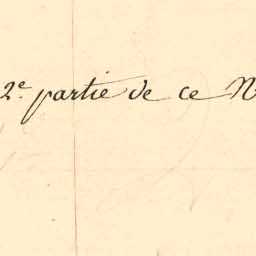 2e partie de ce N